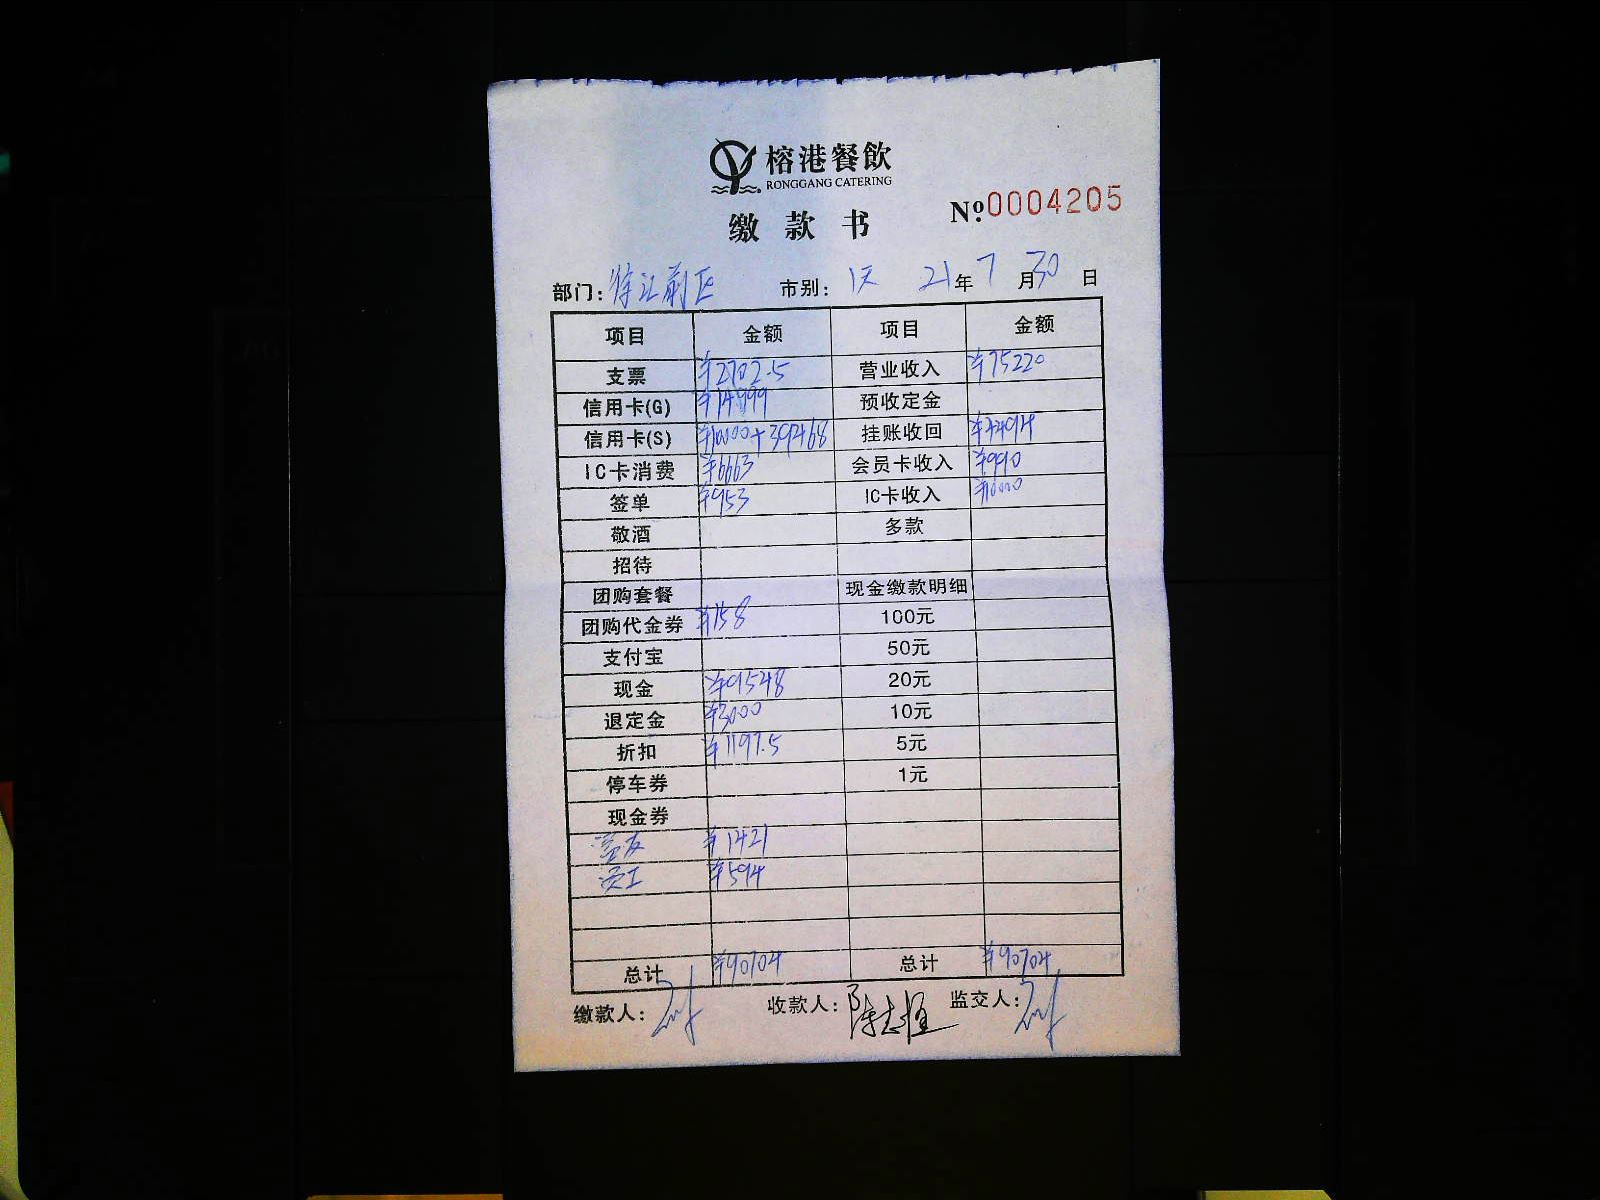 榕港餐飲
RONGGANG CATERING
缴款书 Nº0004205
部门: 徐汇前区 市别: 1天 21年7月30日
项目 金额 项目 金额
支票 ¥2702.5 营业收入 ¥75220
信用卡(G) ¥14999 预收定金
信用卡(S) ¥10000+39468 挂账收回 ¥4494
IC卡消费 ¥6663 会员卡收入 ¥990
签单 ¥953 IC卡收入 ¥10000
敬酒 多款
招待
团购套餐 现金缴款明细
团购代金券 ¥158 100元
支付宝 50元
现金 ¥9548 20元
退定金 ¥3000 10元
折扣 ¥1197.5 5元
停车券 1元
现金券
¥1421
员工 ¥594
总计 ¥90704 总计 ¥90704
缴款人: 收款人: 陈志恒 监交人: